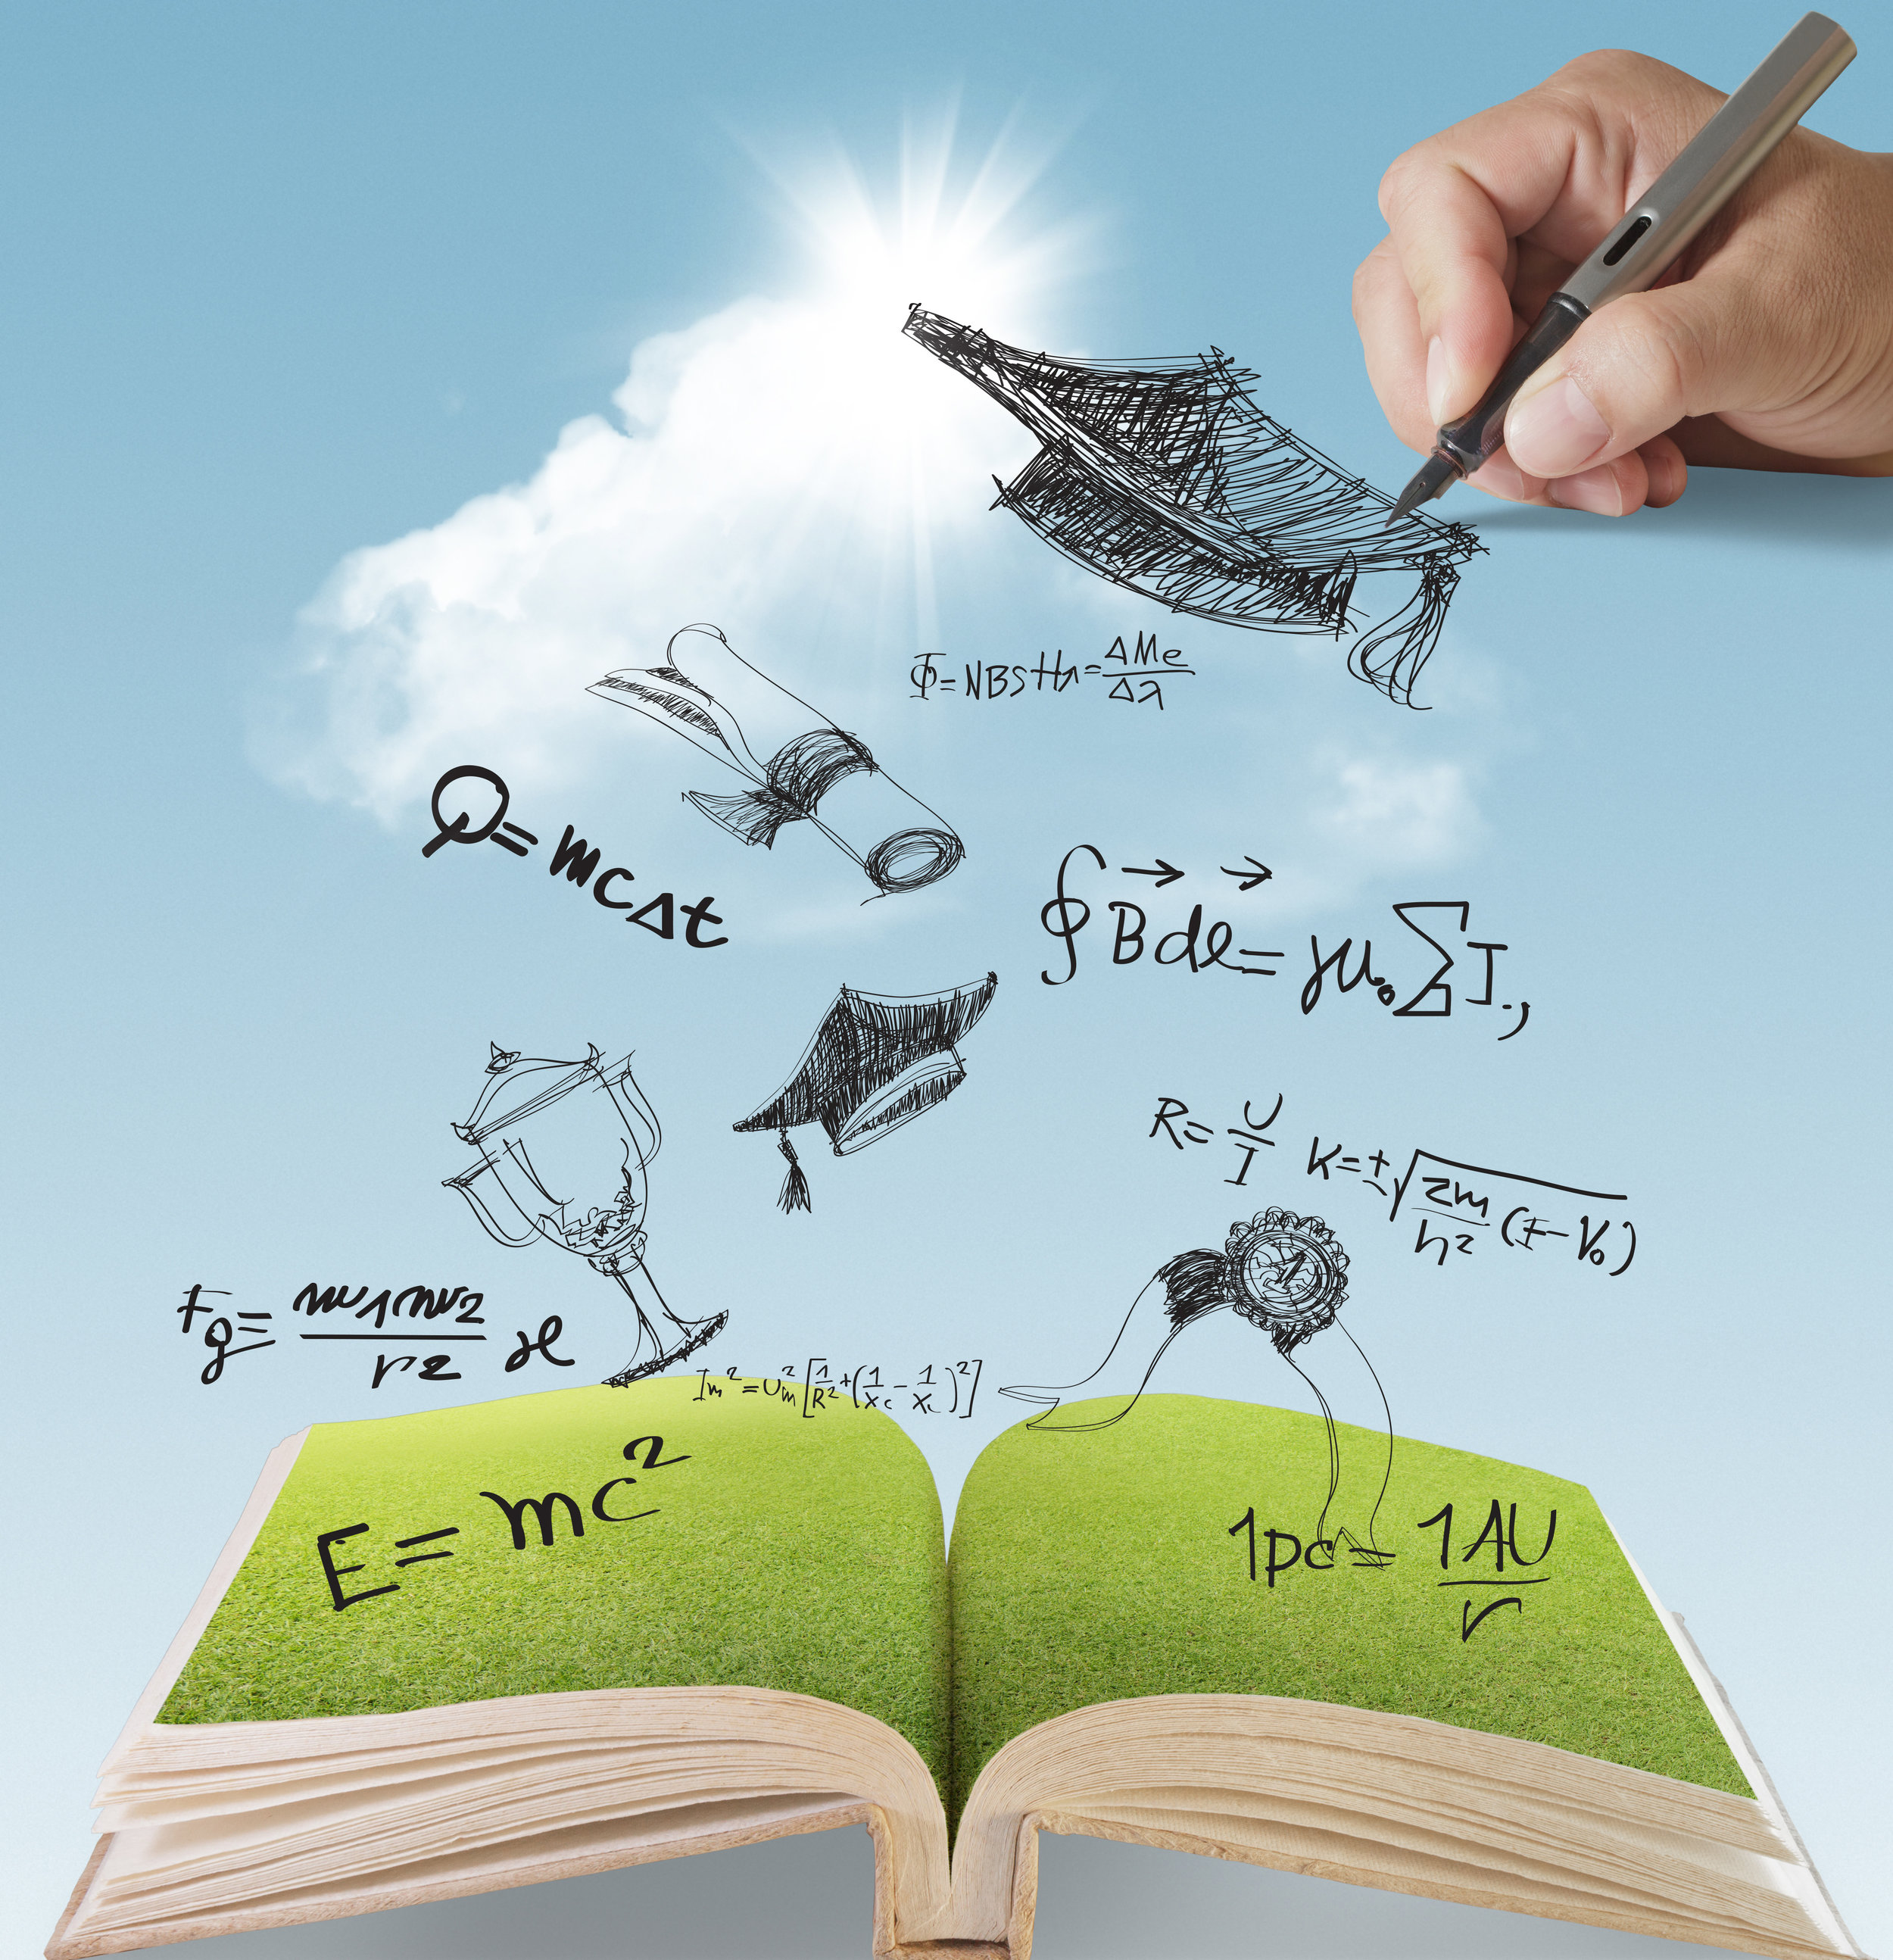 Φ=NBS Hλ=ΔMe/Δλ
Q=mcΔt
∮B⃗dl⃗=γμ₀ΣI.,
R=U/I
K=±√(2m/h²(E-V₀))
Fg=m1m2/r2 æ
Im²=Um²[1/R²+(1/Xc-1/XL)²]
1
E=mc²
1pc=1AU/r